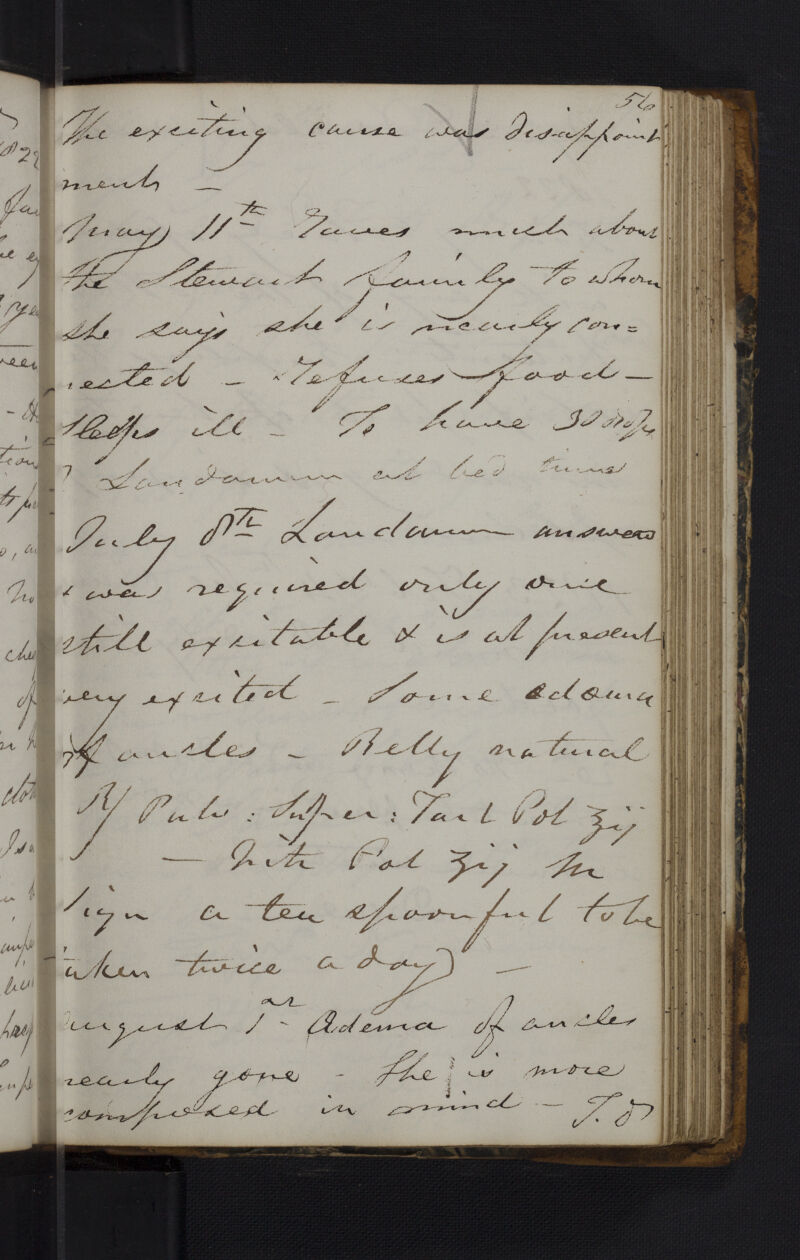 56
The exciting cause was disappoint
ment –
May 11th Raves much about
the Stewart family to whom
she says she is nearly con=
nected – Refuses food –
Sleeps ill – To have 30 drops
Laudanum at bed time
July 8th Laudanum answers
& was required only once
still exsitable & is at present
very exsited – Some odema
of ancles – Belly natural
R/ Pulv: Super: Tart Pot ʒij
– Nitr Pot ʒij M
Sign a tea spoonful to be
taken twice a day –
August 1st Odema of ancles
nearly gone – She is more
composed in mind – T. O